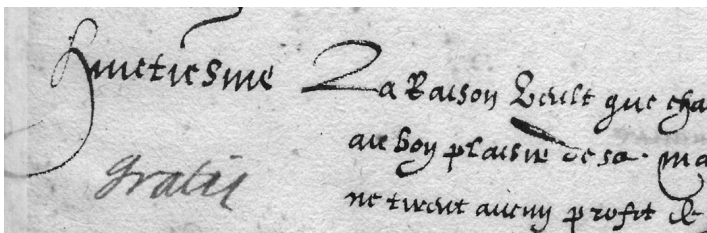 huictiesme La Raison Veult que cha
au bon plaisir de sa ma
gratis
ne tirent aucun profit &